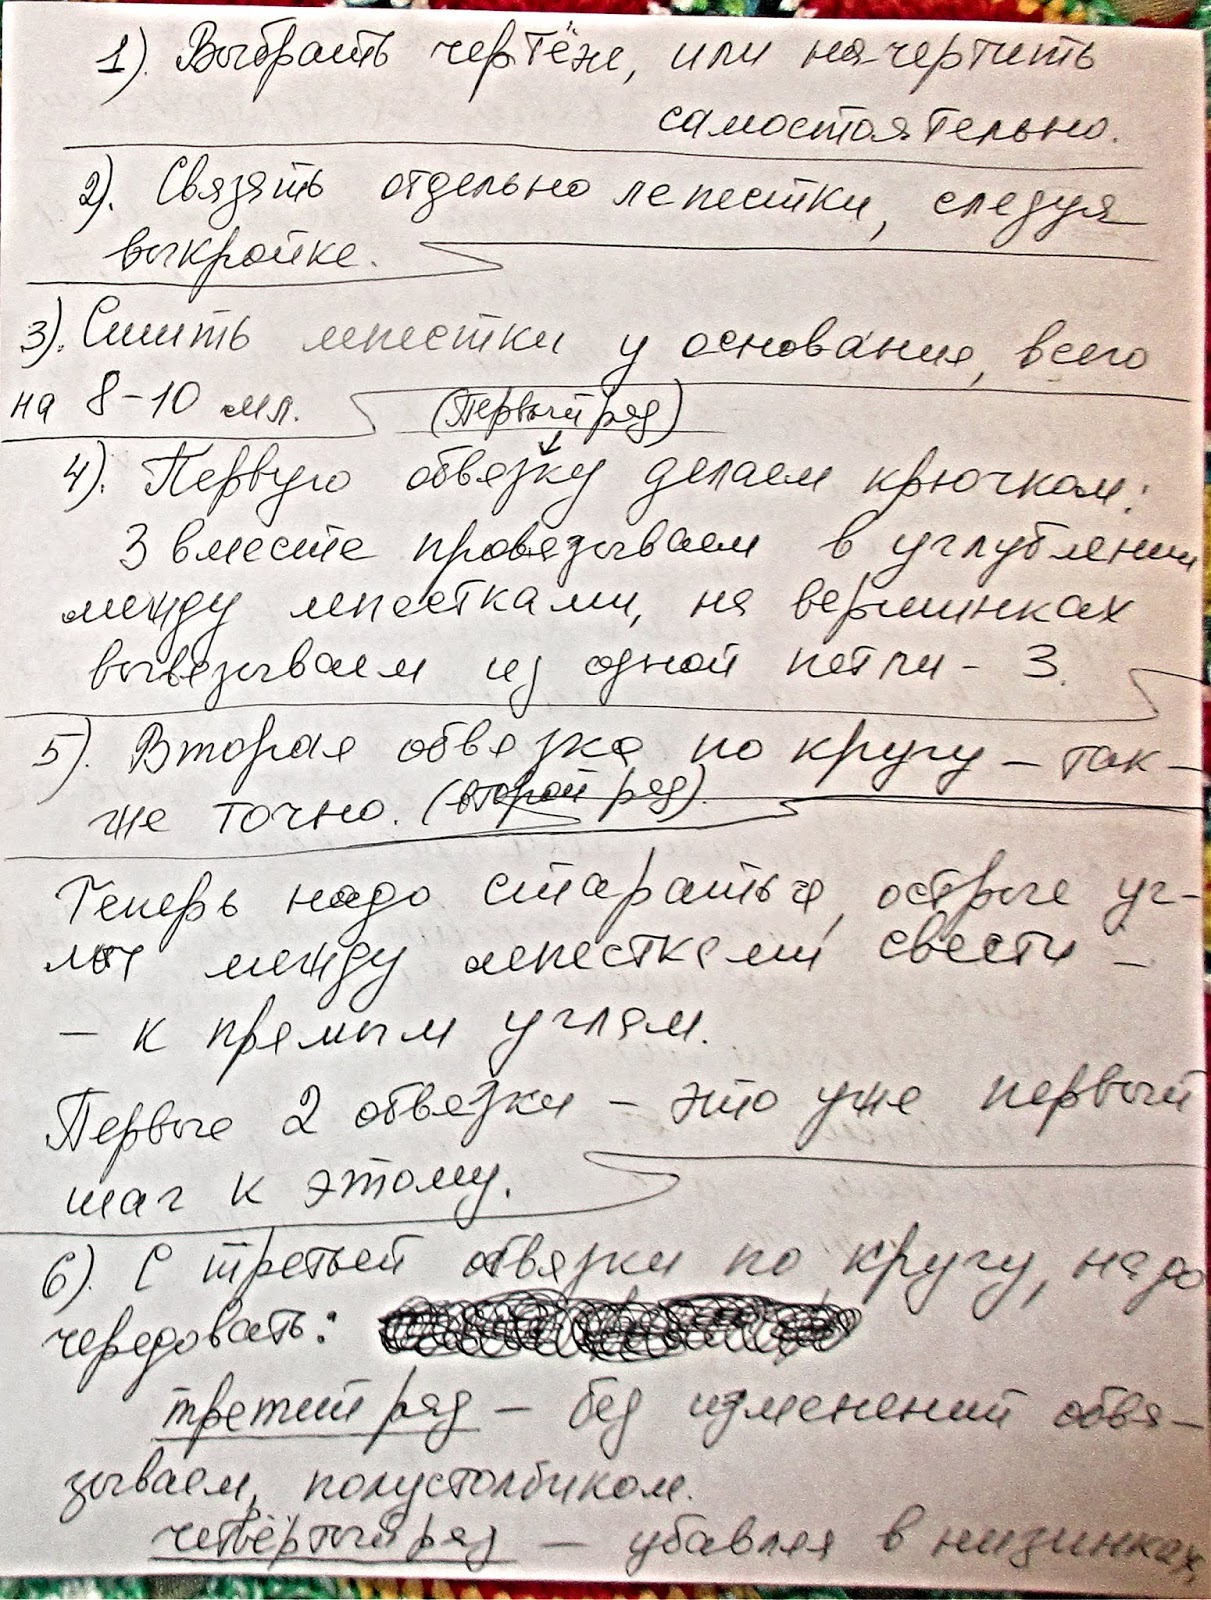 1). Выбрать чертёж, или начертить
самостоятельно.
2). Связать отдельно лепестки, следуя
выкройке.
3). Сшить лепестки у основания, всего
на 8-10 мл.
(Первый ряд)
4). Первую обвязку делаем крючком:
3 вместе провязываем в углублении
между лепестками, на вершинках
вывязываем из одной петли - 3.
5). Вторая обвязка по кругу - так-
же точно. (второй ряд).
Теперь надо стараться, острые уг-
лы между лепестками свести -
- к прямым углам.
Первые 2 обвязки - это уже первый
шаг к этому.
6). С третьей обвязки по кругу, надо
чередовать:
третий ряд - без изменений обвя-
зываем, полустолбиком.
четвёртый ряд - убавляя в низинках,